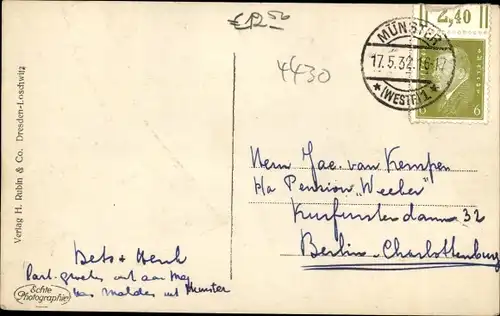 €12 50
4430
2,40
MÜNSTER
17.5.32.16-17
* (WESTF) 1 *
6 6
Verlag H. Rubin & Co. Dresden-Loschwitz
Herrn Jac. van Kempen
p/a Pension „Weeber"
Kurfürstendamm 32
Berlin-Charlottenburg
Bets + Henk
Munster
Echte
Photographie